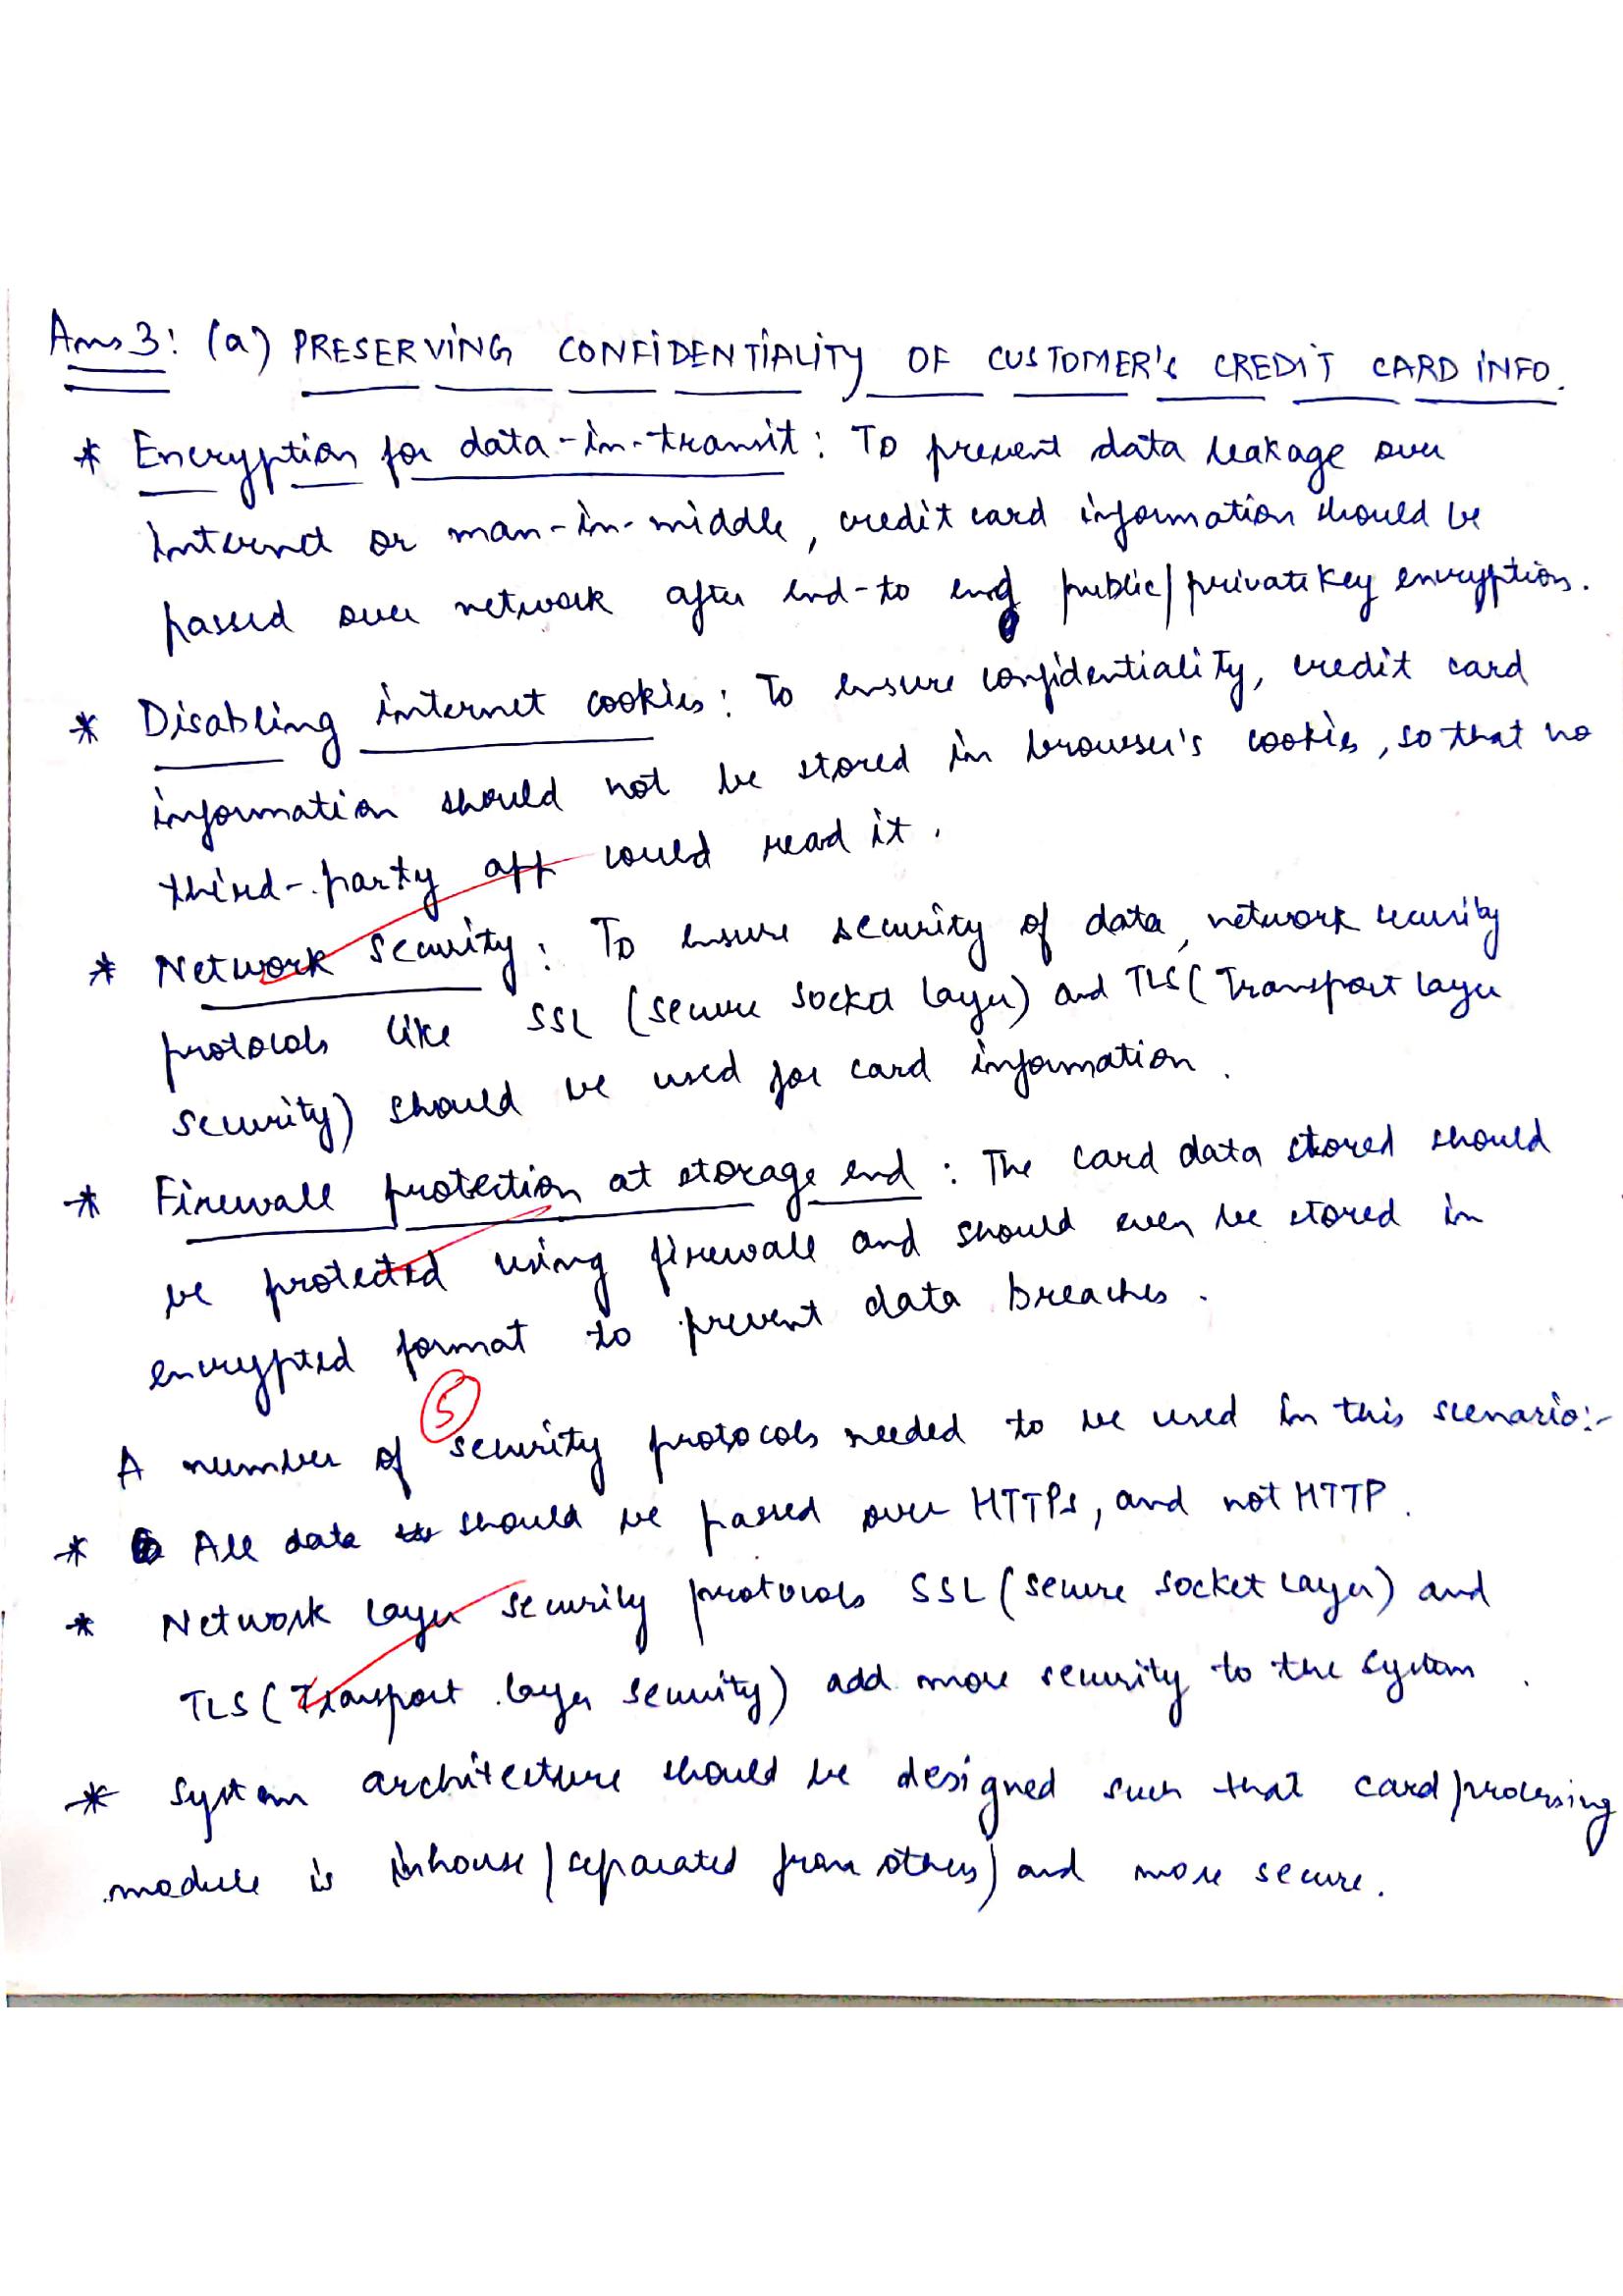 Ans 3: (a) PRESERVING CONFIDENTIALITY OF CUSTOMER'S CREDIT CARD INFO.
* Encryption for data-in-transit: To prevent data leakage over
internet or man-in-middle, credit card information should be
passed over network after end-to end public/private key encryption.
* Disabling internet cookies: To ensure confidentiality, credit card
information should not be stored in browser's cookies, so that no
third-party app could read it.
* Network security: To ensure security of data, network security
protocols like SSL (secure socket layer) and TLS (Transport layer
security) should be used for card information.
* Firewall protection at storage end: The card data stored should
be protected using firewall and should even be stored in
encrypted format to prevent data breaches.
5
A number of security protocols needed to be used in this scenario:-
* All data should be passed over HTTPs, and not HTTP.
* Network layer security protocols SSL (secure socket layer) and
TLS (Transport layer security) add more security to the system.
* System architecture should be designed such that card processing
module is inhouse/separated from others/ and more secure.